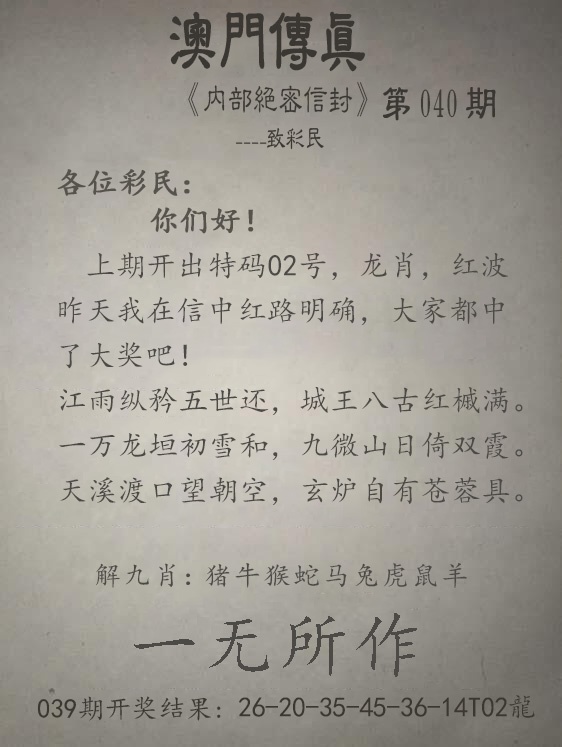 澳門傳眞
《内部絕密信封》第040期
----致彩民
各位彩民：
你们好！
上期开出特码02号，龙肖，红波
昨天我在信中红路明确，大家都中
了大奖吧！
江雨纵矜五世还，城王八古红槭满。
一万龙垣初雪和，九微山日倚双霞。
天溪渡口望朝空，玄炉自有苍蓉具。
解九肖：猪牛猴蛇马兔虎鼠羊
一无所作
039期开奖结果：26-20-35-45-36-14T02龍